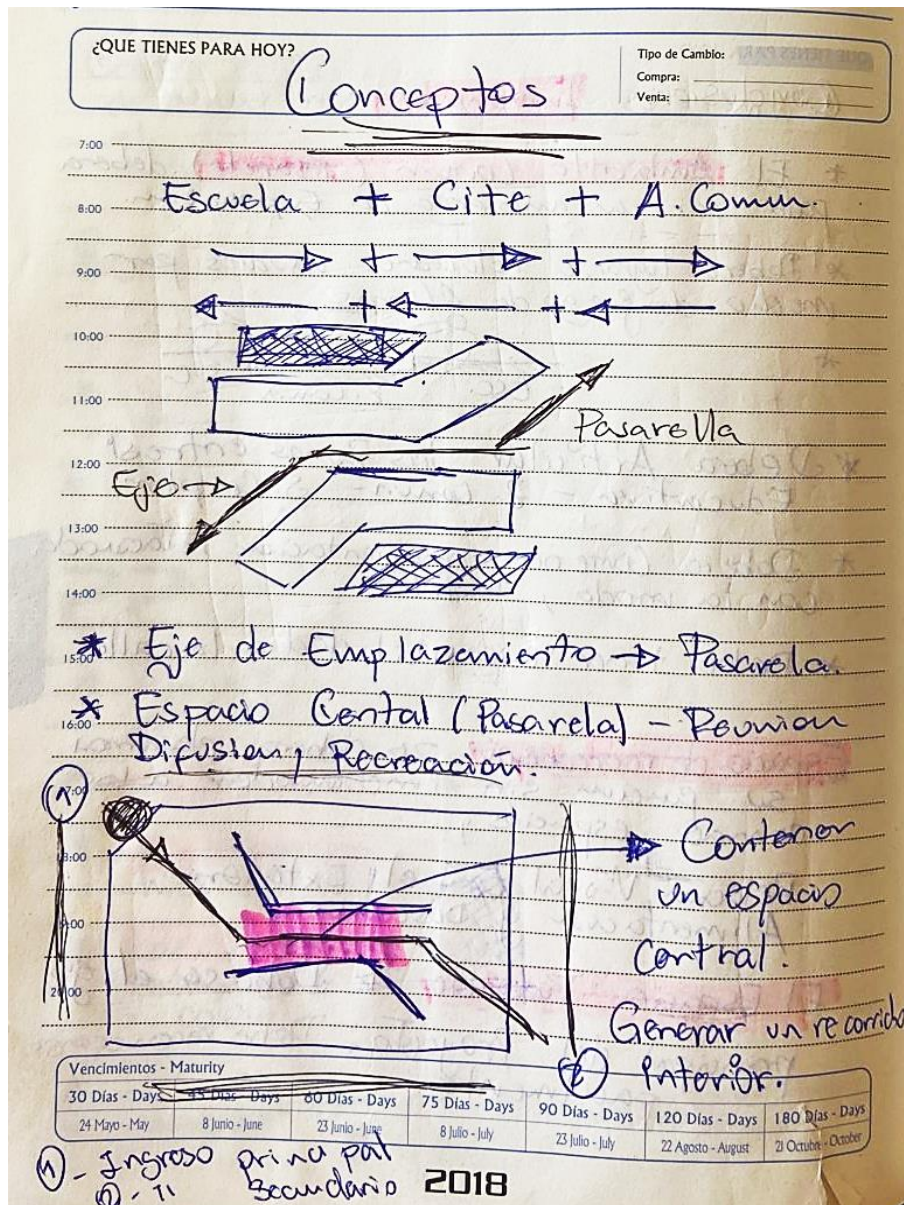 ¿QUE TIENES PARA HOY?
Tipo de Cambio:
Compra:
Venta:
Conceptos
7:00
8:00
Escuela + Cite + A. Comun.
9:00
+ +
+ +
10:00
11:00
Pasarella
12:00
Eje
13:00
14:00
* Eje de Emplazamiento → Pasarela.
15:00
* Espacio Cental (Pasarela) - Reunion
16:00
Difusion, Recreación.
1
Contener
un espacio
Central.
Generar un recorrido
2 interior.
Vencimientos - Maturity
30 Días - Days 45 Días - Days 60 Días - Days 75 Días - Days 90 Días - Days 120 Días - Days 180 Días - Days
24 Mayo - May 8 Junio - June 23 Junio - June 8 Julio - July 23 Julio - July 22 Agosto - August 21 Octubre - October
1 - Ingreso principal
2 - 11 Secundario
2018